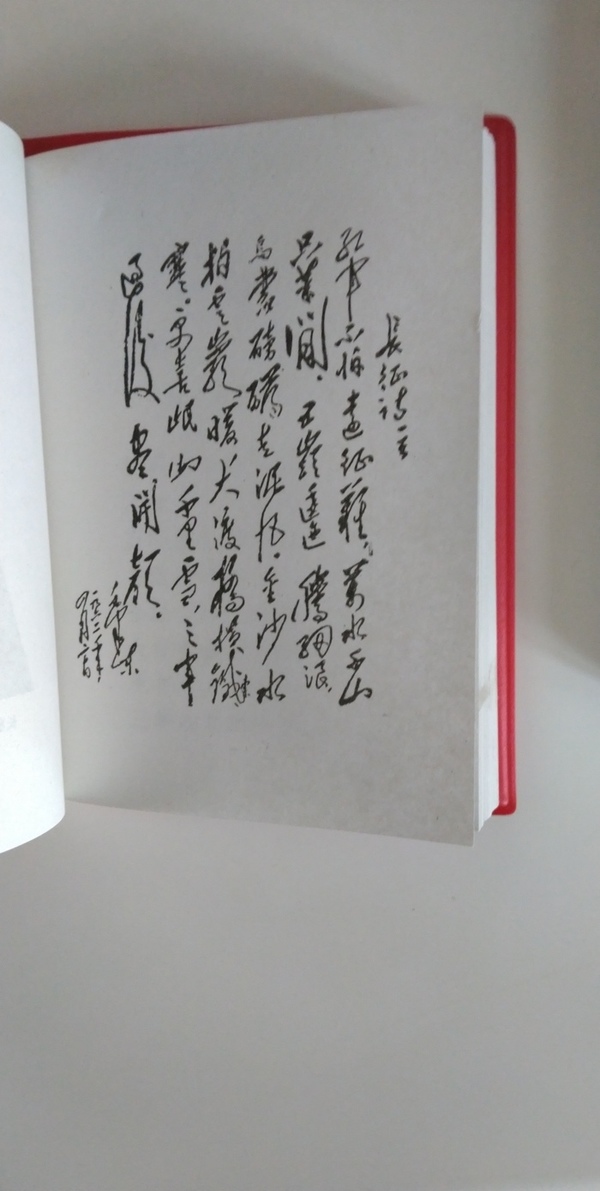 長征詩一首
紅軍不怕遠征難，萬水千山
只等閒。五嶺逶迤騰細浪，
烏蒙磅礴走泥丸。金沙水
拍雲崖暖，大渡橋橫鐵索
寒。更喜岷山千里雪，三軍
過後盡開顏。
毛澤東
一九六二年，
四月二十日